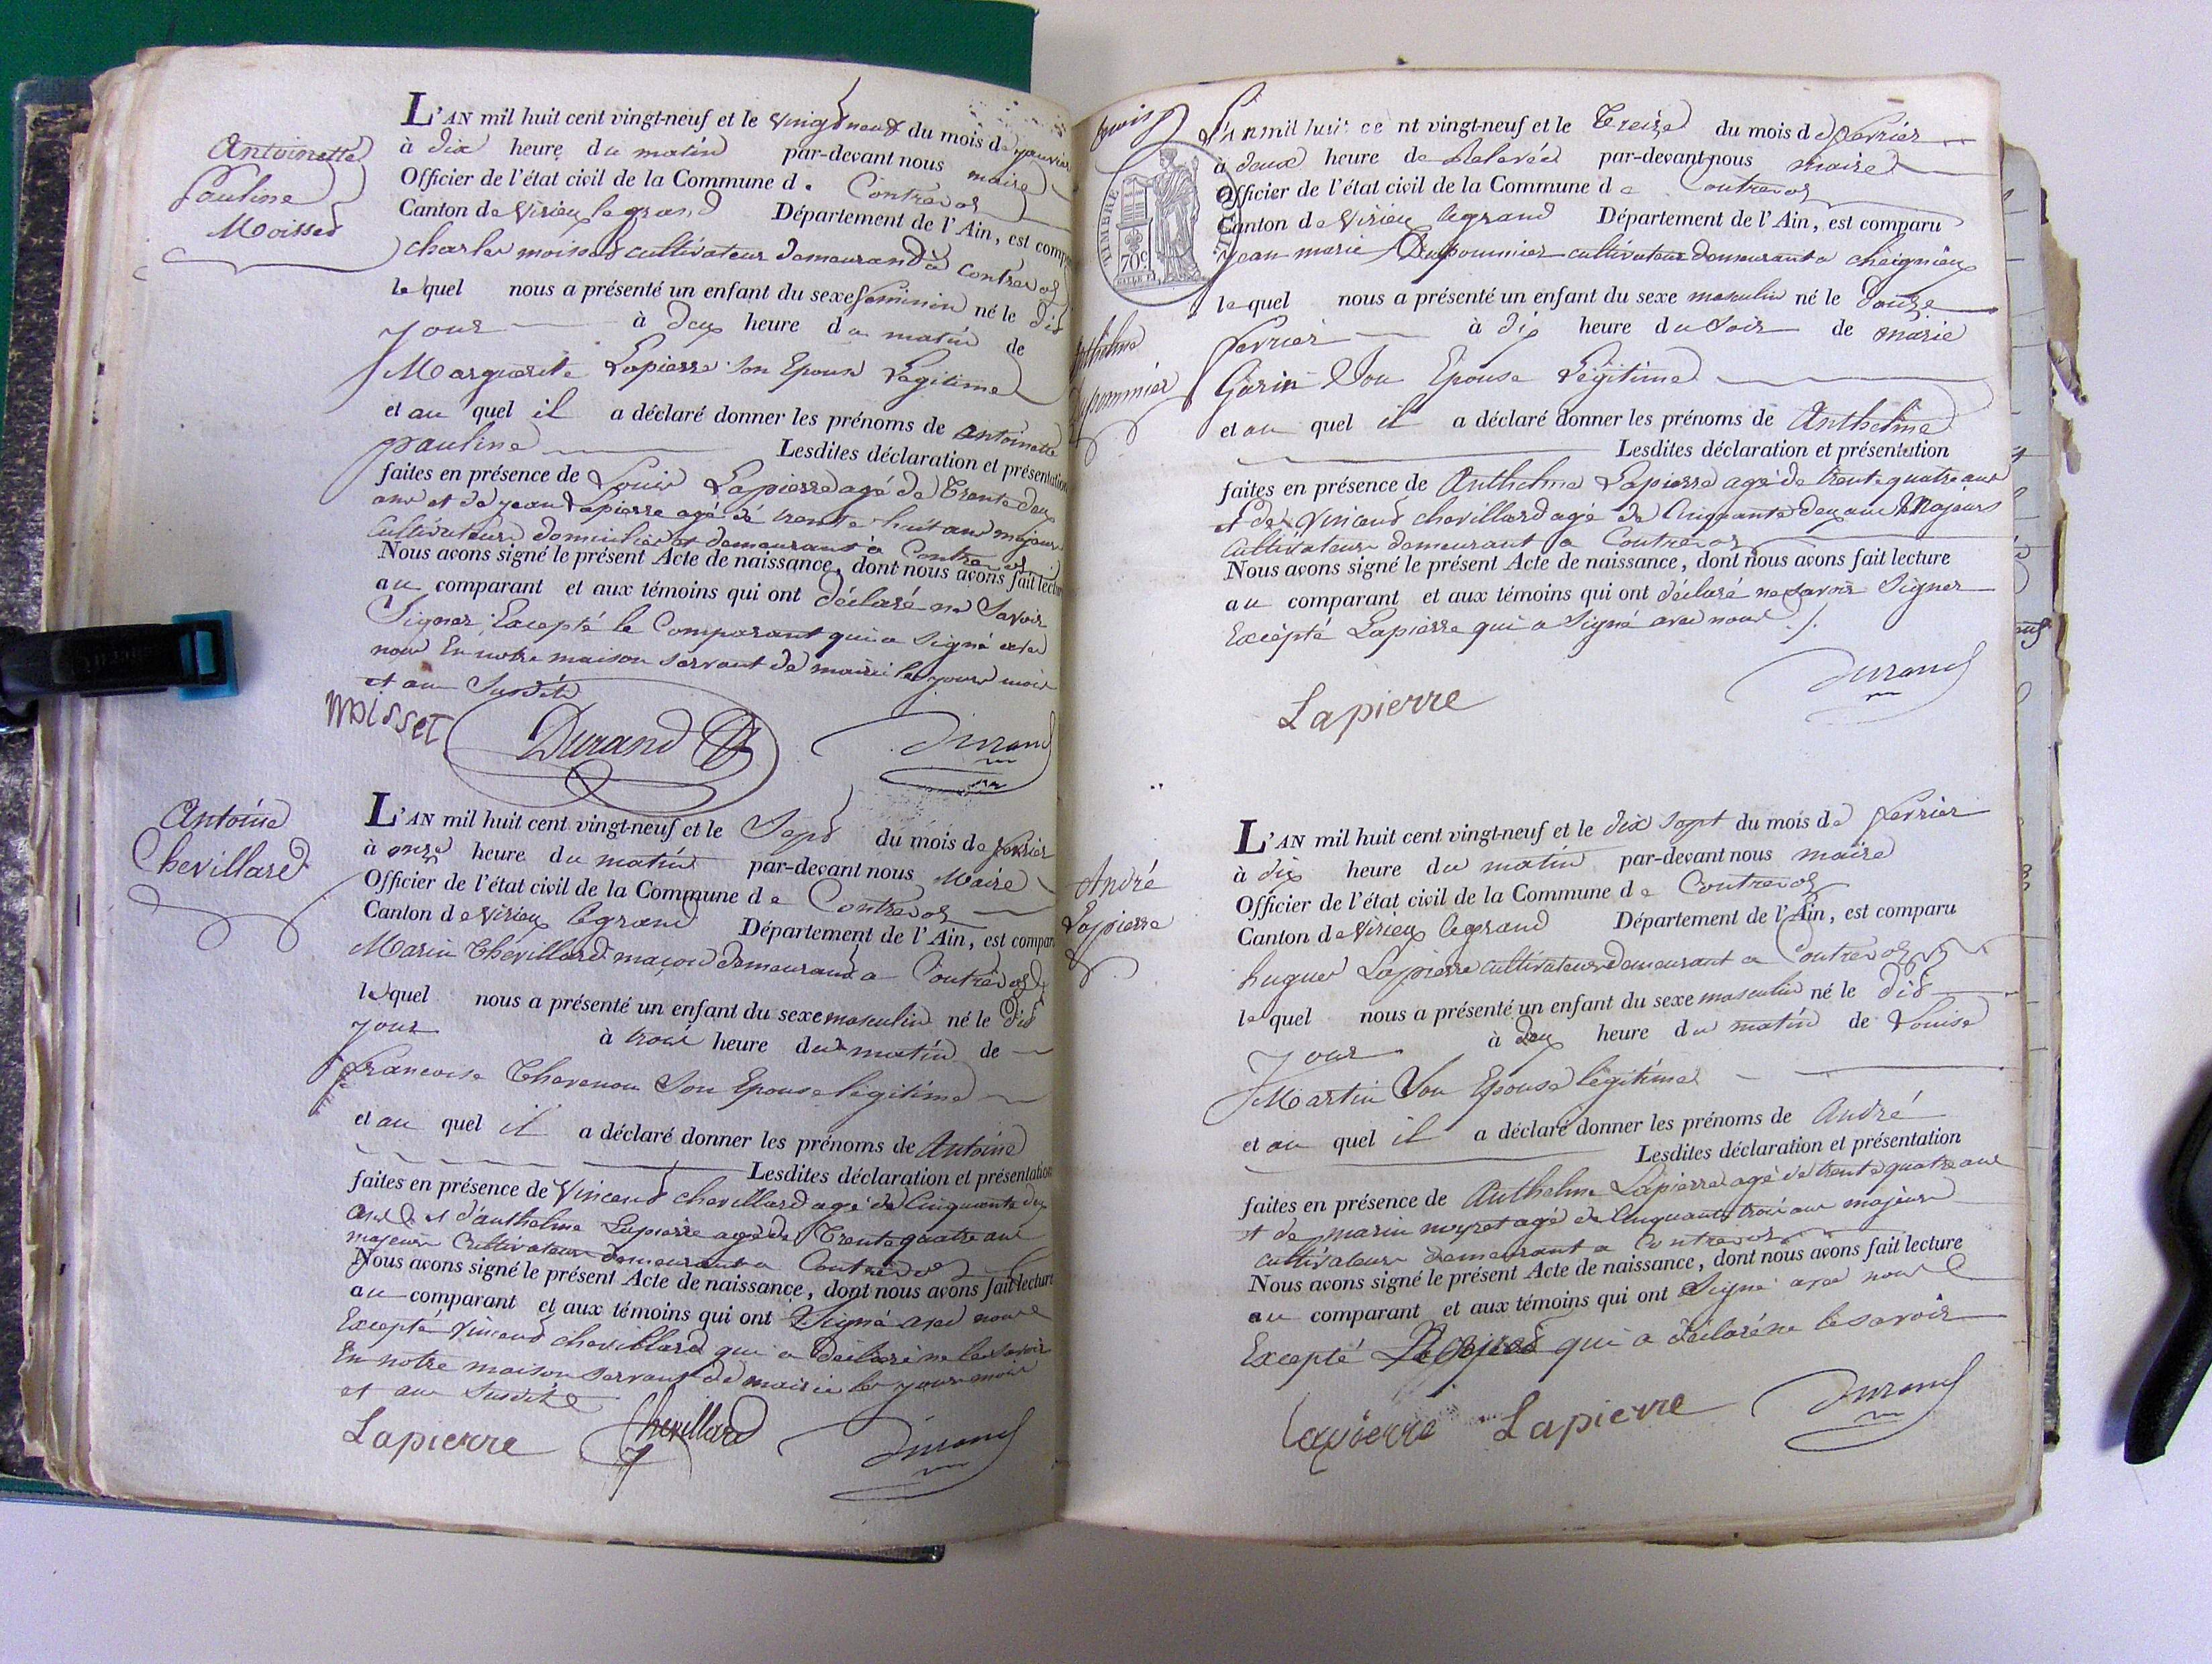 Antoinette
Pauline
Moisset
L'AN mil huit cent vingt-neuf et le vingt neuf du mois de janvier
à dix heure du matin par-devant nous maire
Officier de l'état civil de la Commune d. Contrevoz
Canton de Virieu legrand Département de l'Ain, est comp
charles moisset cultivateur demeurand à Contrevoz
lequel nous a présenté un enfant du sexe feminin né le dit
jour à deux heure du matin de
Marguerite Lapierre son Epouse Légitime
et au quel il a déclaré donner les prénoms de Antoinette
pauline Lesdites déclaration et présentation
faites en présence de Louis Lapierre agé de Trente deux
ans et de jean Lapierre agé de trente huit ans majeurs
Cultivateurs domiciliés et demeurant à Contrevoz
Nous avons signé le présent Acte de naissance, dont nous avons fait lecture
au comparant et aux témoins qui ont déclaré ne Savoir
Signer Excepté le Comparant qui a Signé avec
nous En notre maison servant de mairie les jours mois
et an Susdits
moisset Durand Durand
Antoine
Chevillard
L'AN mil huit cent vingt-neuf et le Sept du mois de fevrier
à onze heure du matin par-devant nous Maire
Officier de l'état civil de la Commune de Contrevoz
Canton de Virieu legrand Département de l'Ain, est compar
Marin Chevillard maçon demeurant a Contrevoz
lequel nous a présenté un enfant du sexe masculin né le dit
jour à trois heure du matin de
francoise Thevenon Son Epouse légitime
et au quel il a déclaré donner les prénoms de Antoine
Lesdites déclaration et présentation
faites en présence de Vincent chevillard agé de Cinquante deux
ans et d'anthelme Lapierre agé de Trente quatre ans
majeurs Cultivateurs demeurant a Contrevoz
Nous avons signé le présent Acte de naissance, dont nous avons fait lecture
au comparant et aux témoins qui ont Signé avec nous
Excepté Vincent chevillard qui a déclaré ne le savoir
En notre maison servant de mairie les jours mois
et an Susdits
Lapierre Chevillard Durand
TIMBRE ROYAL
70 c.
L'an mil huit cent vingt-neuf et le Treize du mois de fevrier
à deux heure de Relevée par-devant nous maire
Officier de l'état civil de la Commune de Contrevoz
Canton de Virieu legrand Département de l'Ain, est comparu
jean marie Dupommier cultivateur demeurant a cheignieu
lequel nous a présenté un enfant du sexe masculin né le douze
fevrier à dix heure du Soir de marie
Gorin Son Epouse Légitime
et au quel il a déclaré donner les prénoms de Anthelme
Lesdites déclaration et présentation
faites en présence de Anthelme Lapierre agé de trente quatre ans
et de Vincent chevillard agé de Cinquante deux ans Majeurs
Cultivateurs demeurant a Contrevoz
Nous avons signé le présent Acte de naissance, dont nous avons fait lecture
au comparant et aux témoins qui ont déclaré ne savoir Signer
Excépté Lapierre qui a Signé avec nous
Lapierre Durand
André
Lapierre
L'AN mil huit cent vingt-neuf et le dix sept du mois de fevrier
à dix heure du matin par-devant nous maire
Officier de l'état civil de la Commune de Contrevoz
Canton de Virieu legrand Département de l'Ain, est comparu
hugues Lapierre cultivateur demeurant a Contrevoz
lequel nous a présenté un enfant du sexe masculin né le dit
jour à deux heure du matin de Louise
Martin Son Epouse légitime
et au quel il a déclaré donner les prénoms de André
Lesdites déclaration et présentation
faites en présence de Anthelme Lapierre agé de trente quatre ans
et de marin agé de Cinquante trois ans majeurs
cultivateurs demeurant a Contrevoz
Nous avons signé le présent Acte de naissance, dont nous avons fait lecture
au comparant et aux témoins qui ont Signé avec nous
Excepté qui a déclaré ne le savoir
Lapierre Lapierre Durand